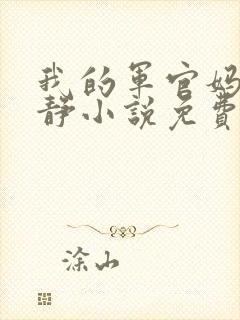 我的军官妈
静小说免费
涂山